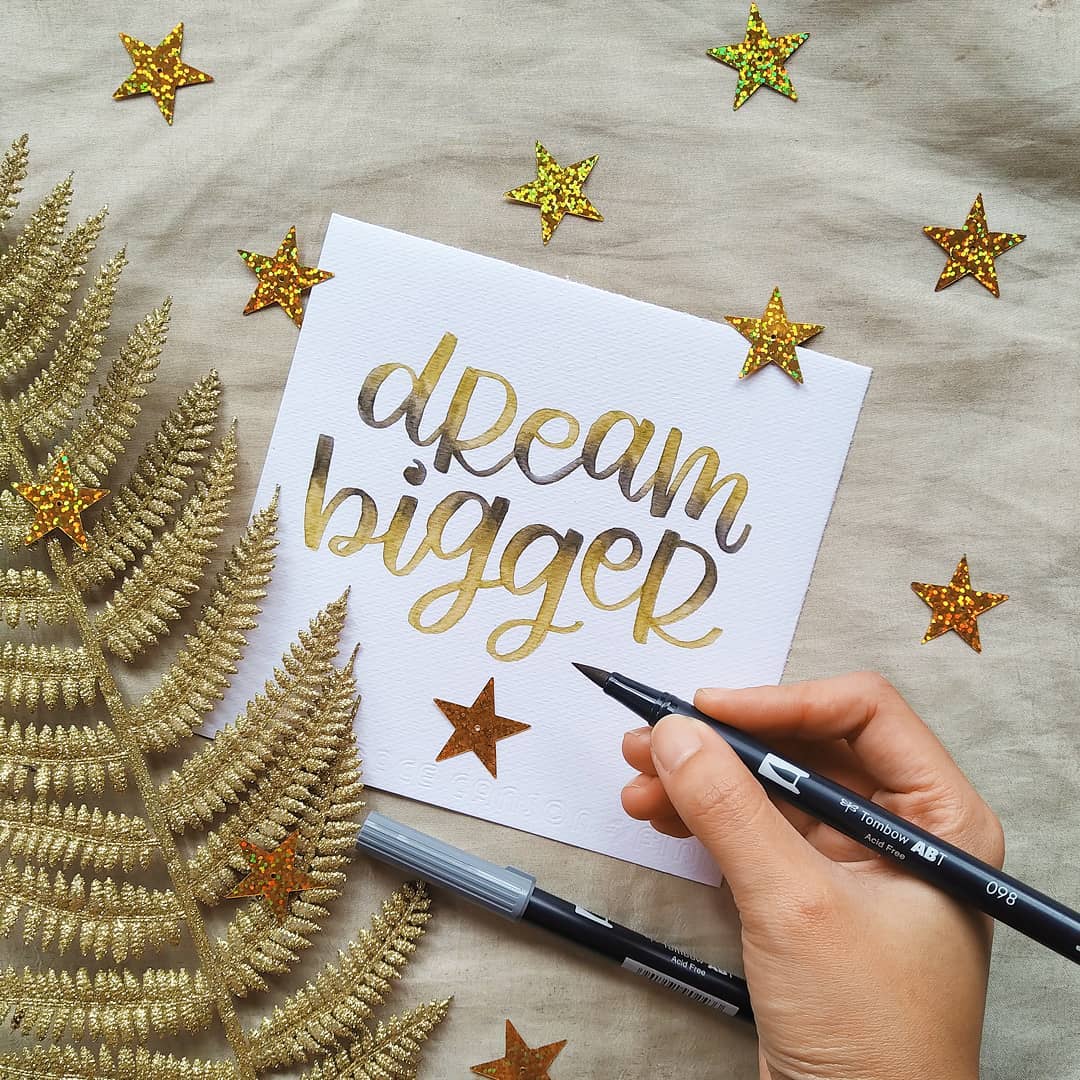 dream
bigger
Tombow ABT
Acid Free
098
Tombow ABT
Acid Free